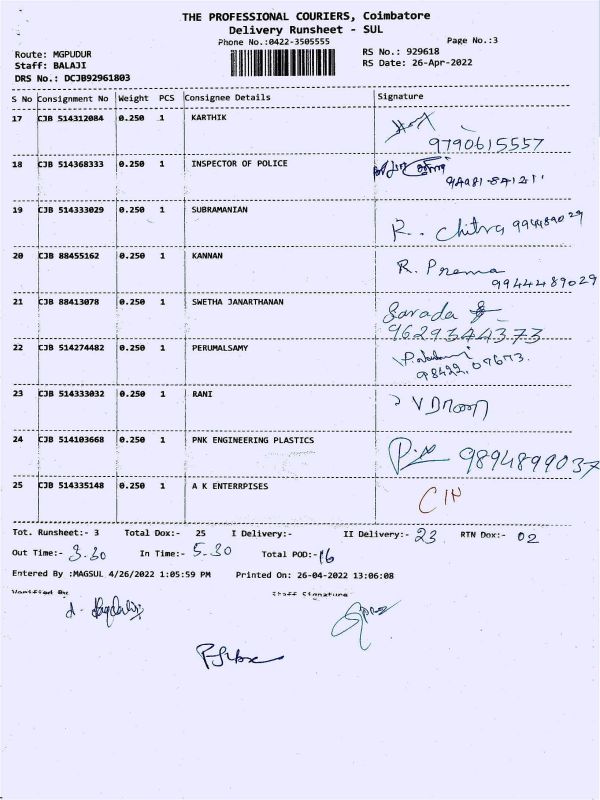 THE PROFESSIONAL COURIERS, Coimbatore
Delivery Runsheet - SUL
Phone No.:0422-3505555
Page No.:3
Route: MGPUDUR
RS No.: 929618
Staff: BALAJI
RS Date: 26-Apr-2022
DRS No.: DCJB92961803
S No Consignment No Weight PCS Consignee Details Signature
17 CJB 514312084 0.250 1 KARTHIK
9790615557
18 CJB 514368333 0.250 1 INSPECTOR OF POLICE
19 CJB 514333029 0.250 1 SUBRAMANIAN
R. Chitra 994489029
20 CJB 88455162 0.250 1 KANNAN
R. Prema
9944489029
21 CJB 88413078 0.250 1 SWETHA JANARTHANAN
Sarada
9629344373
22 CJB 514274482 0.250 1 PERUMALSAMY
98422.07673.
23 CJB 514333032 0.250 1 RANI
24 CJB 514103668 0.250 1 PNK ENGINEERING PLASTICS
9894899037
25 CJB 514335148 0.250 1 A K ENTERRPISES
Tot. Runsheet:- 3 Total Dox:- 25 I Delivery:- II Delivery:- 23 RTN Dox:- 02
Out Time:- 3.30 In Time:- 5.30 Total POD:- 16
Entered By :MAGSUL 4/26/2022 1:05:59 PM Printed On: 26-04-2022 13:06:08
Verified By Staff Signature